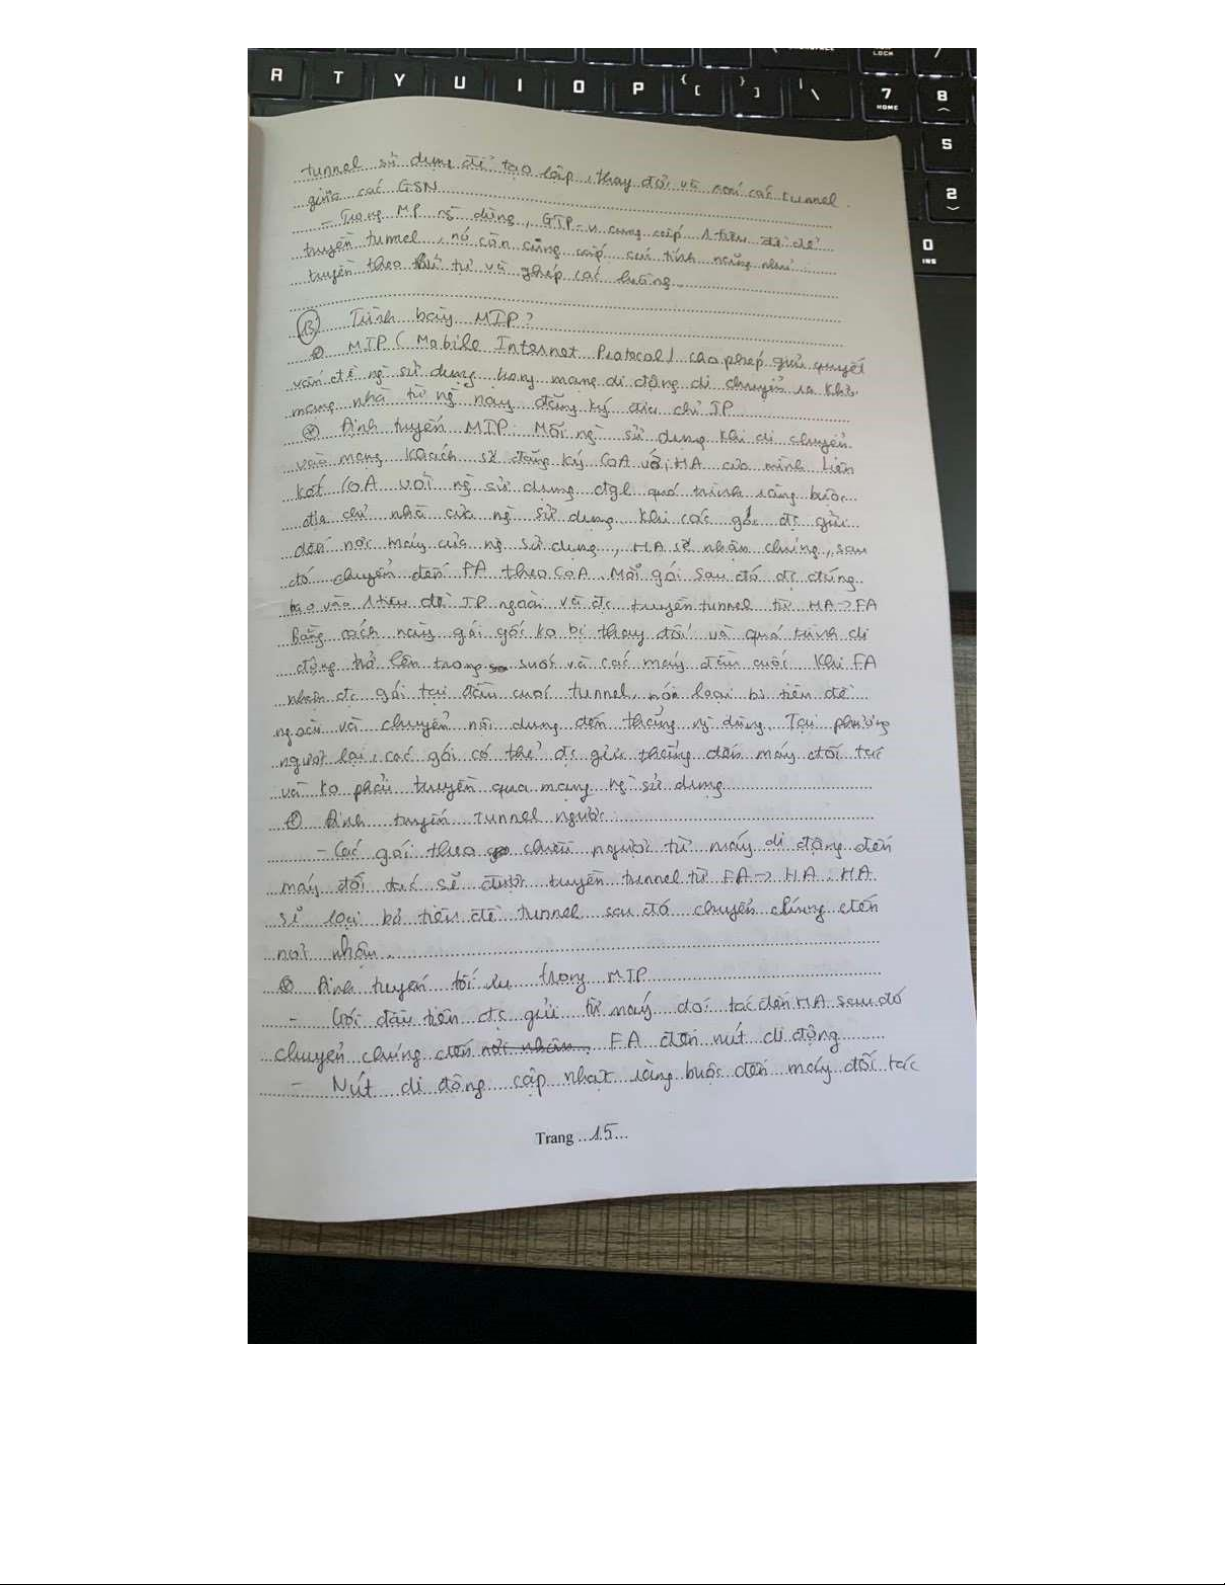 R T Y U I O P { [ } ] | \ 7 HOME 8
LOCK
5
2
0 INS
tunnel sử dụng để tạo lập, thay đổi và xoá các tunnel.
giữa các GSN
- Trong MP ng dùng, GTP-u cung cấp 1 tiêu đề để
truyền tunnel, nó còn cung cấp các tính năng như
truyền theo thứ tự và ghép các luồng.
13 Trình bày MIP?
MIP (Mobile Internet Protocol) cho phép giải quyết
vấn đề ng sử dụng trong mạng di động di chuyển ra khỏi
mạng nhà từ ng này đăng ký địa chỉ IP
Định tuyến MIP: Mỗi ng sử dụng khi di chuyển
vào mạng khách sẽ đăng ký CoA với HA của mình. Liên
kết CoA với ng sử dụng đgl quá trình ràng buộc
địa chỉ nhà của ng sử dụng. Khi các gói đc gửi
đến nơi máy của ng sử dụng, HA sẽ nhận chúng, sau
đó chuyển đến FA theo CoA. Mỗi gói sau đó đc đóng
bao vào 1 tiêu đề IP ngoài và đc truyền tunnel từ HA -> FA
Bằng cách này gói gốc ko bị thay đổi và quá trình di
động trở lên trong suốt và các máy đầu cuối. Khi FA
nhận đc gói tại đầu cuối tunnel, nó loại bỏ tiêu đề
ngoài và chuyển nội dung đến thẳng ng dùng. Tại phương
ngược lại, các gói có thể đc gửi thẳng đến máy đối tác
và ko phải truyền qua mạng ng sử dụng
Định tuyến tunnel ngược:
- Các gói theo chiều ngược từ máy di động đến
máy đối tác sẽ được truyền tunnel từ FA -> HA. HA
sẽ loại bỏ tiêu đề tunnel sau đó chuyển chúng đến
nơi nhận.
Định tuyến tối ưu trong MIP
- Gói đầu tiên đc gửi từ máy đối tác đến HA sau đó
chuyển chúng đến FA đến nút di động
- Nút di động cập nhật ràng buộc đến máy đối tác
Trang ...15...